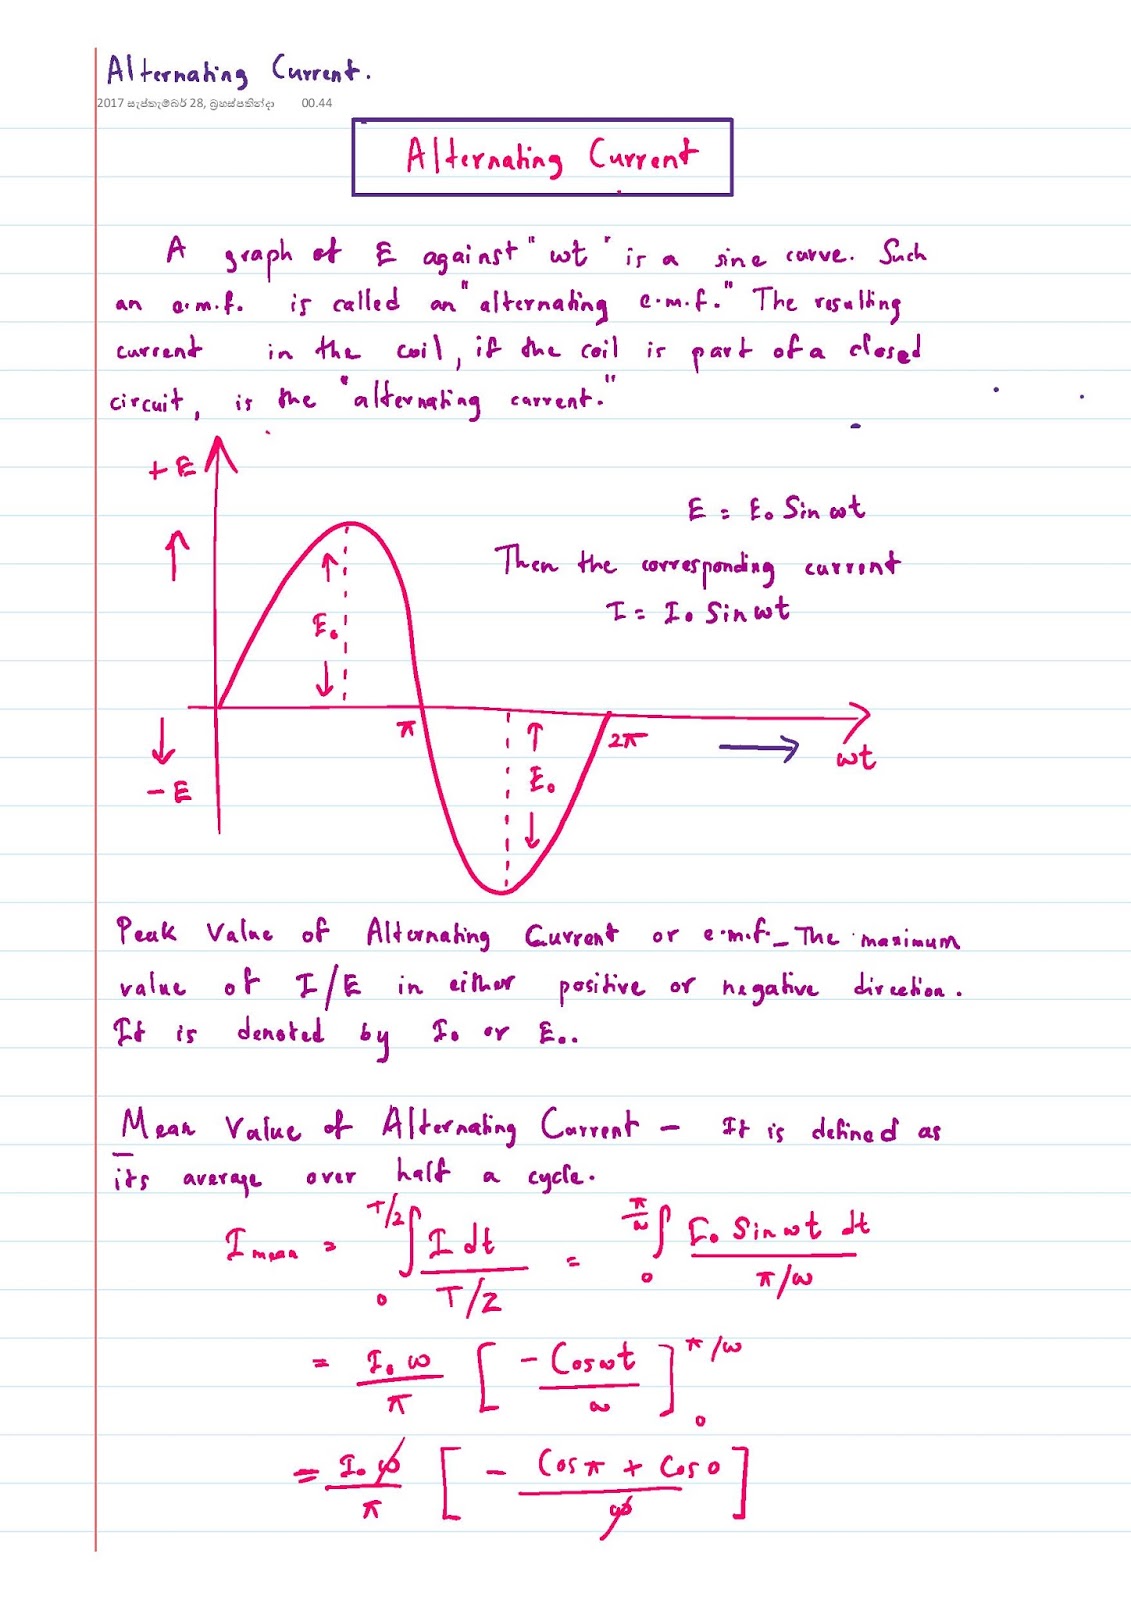 Alternating Current.
2017 සැප්තැම්බර් 28, බ්‍රහස්පතින්දා 00.44
Alternating Current
A graph of E against "wt" is a sine curve. Such
an e.m.f. is called an "alternating e.m.f." The resulting
current in the coil, if the coil is part of a closed
circuit, is the "alternating current."
+E
E = E₀ Sin ωt
Then the corresponding current
I = I₀ Sin ωt
E₀
π
2π
ωt
E₀
-E
Peak Value of Alternating Current or e.m.f. - The maximum
value of I/E in either positive or negative direction.
It is denoted by I₀ or E₀.
Mean Value of Alternating Current - It is defined as
its average over half a cycle.
I mean = ∫₀^(T/2) I dt / (T/2) = ∫₀^(π/ω) I₀ Sin ωt dt / (π/ω)
= I₀ ω / π [ - Cos ωt / ω ]₀^(π/ω)
= I₀ ω / π [ - Cos π + Cos 0 / ω ]